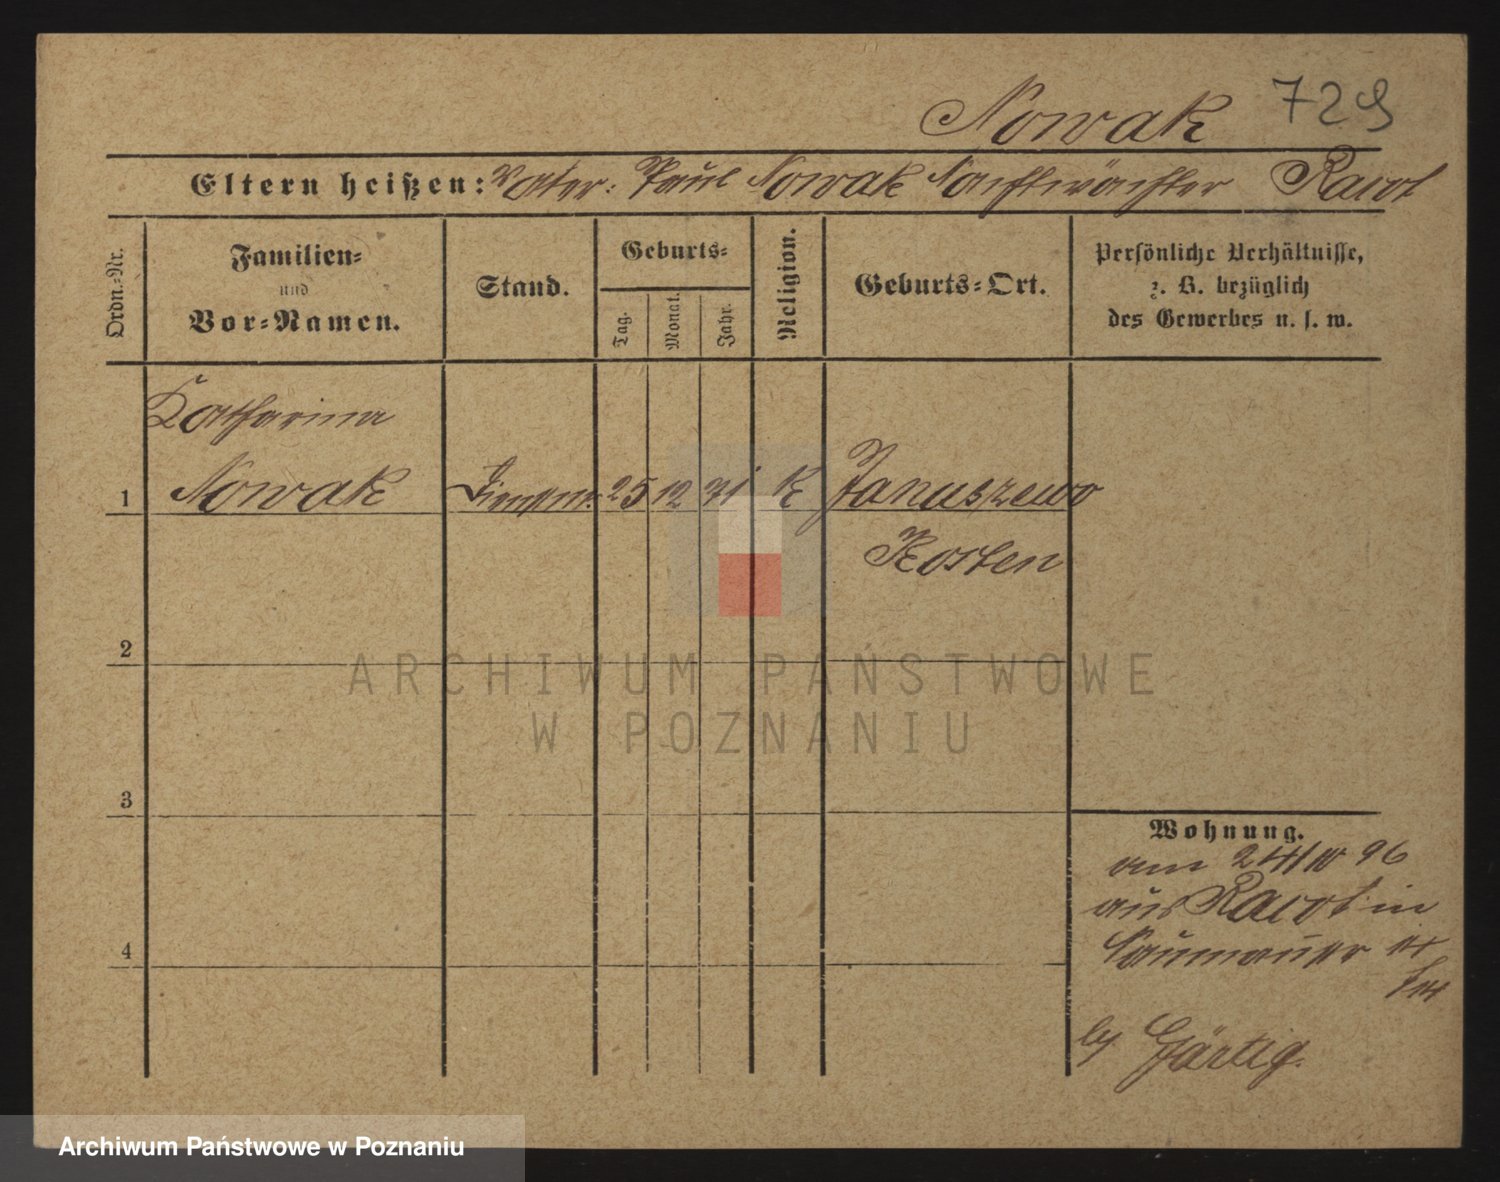 Nowak 729
Eltern heißen: Vater: Paul Nowak Nachtwächter Racot
Ordn.-Nr.
Familien-
und
Vor-Namen.
Stand.
Geburts-
Tag.
Monat.
Jahr.
Religion.
Geburts-Ort.
Persönliche Verhältnisse,
z. B. bezüglich
des Gewerbes u. s. w.
Katharina
1 Nowak 25 12 71 K Januszewo
Kosten
2
ARCHIWUM PAŃSTWOWE
W POZNANIU
3
Wohnung.
am 24/10 96
aus Racot in
4
by Gärtig.
Archiwum Państwowe w Poznaniu